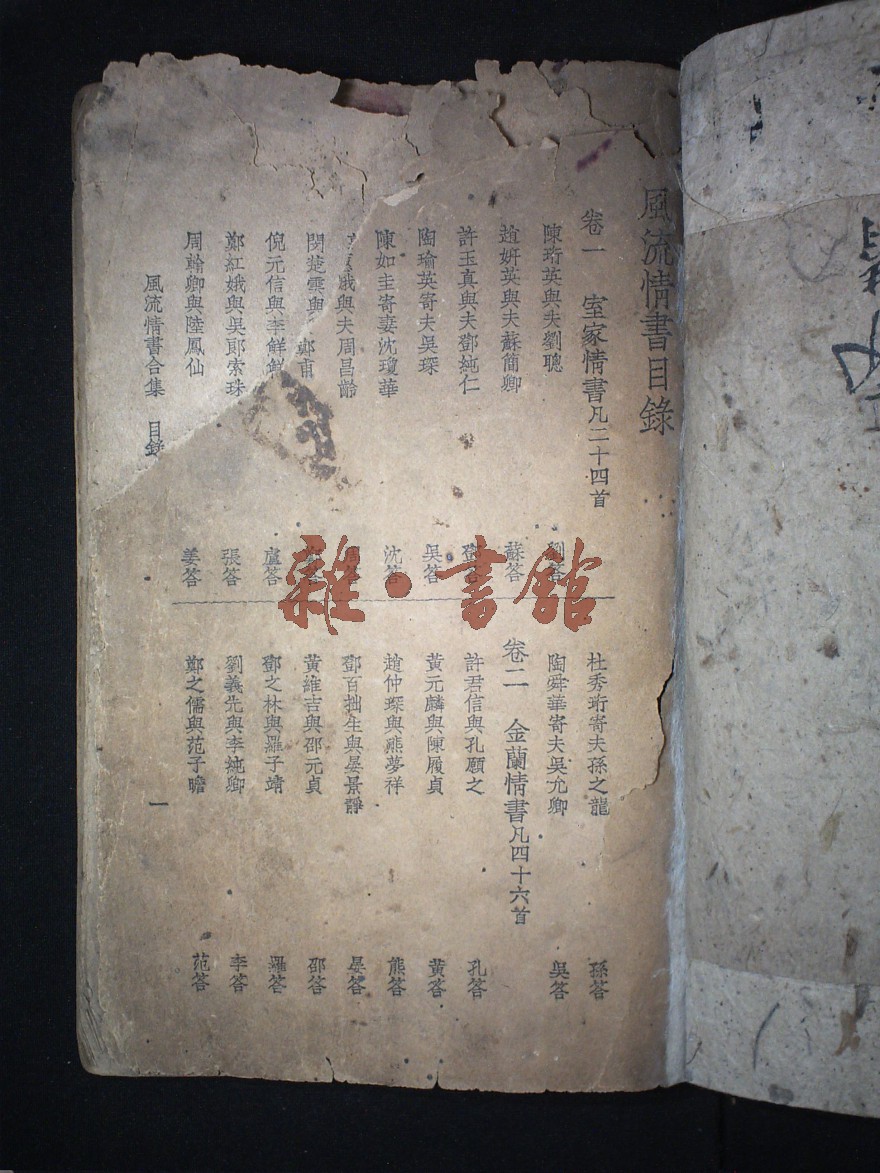 風流情書目錄
卷一 室家情書凡二十四首
陳珩英與夫劉聰 劉答
趙妍英與夫蘇簡卿 蘇答
許玉真與夫鄧純仁 鄧答
陶瑜英寄夫吳琛 吳答
陳如圭寄妻沈瓊華 沈答
娥與夫周昌齡 周答
閔楚雲與 鄭甫
倪元信與李鮮鮮 盧答
鄭紅娥與吳郎索珠 張答
周翰卿與陸鳳仙 姜答
杜秀珩寄夫孫之龍 孫答
陶舜華寄夫吳允卿 吳答
卷二 金蘭情書凡四十六首
許君信與孔願之 孔答
黃元麟與陳履貞 黃答
趙仲琛與熊夢祥 熊答
鄧百拙生與晏景靜 晏答
黃維吉與邵元貞 邵答
鄧之林與羅子靖 羅答
劉義先與李純卿 李答
鄭之儒與范子瞻 范答
風流情書合集 目錄 一
雜·書館